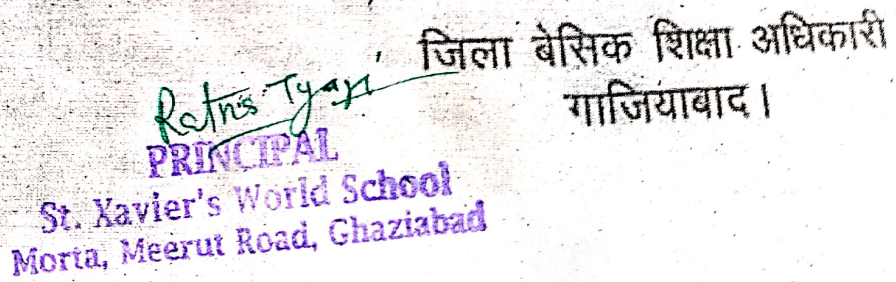 जिला बेसिक शिक्षा अधिकारी
गाजियाबाद।
Tyagi
PRINCIPAL
St. Xavier's World School
Morta, Meerut Road, Ghaziabad